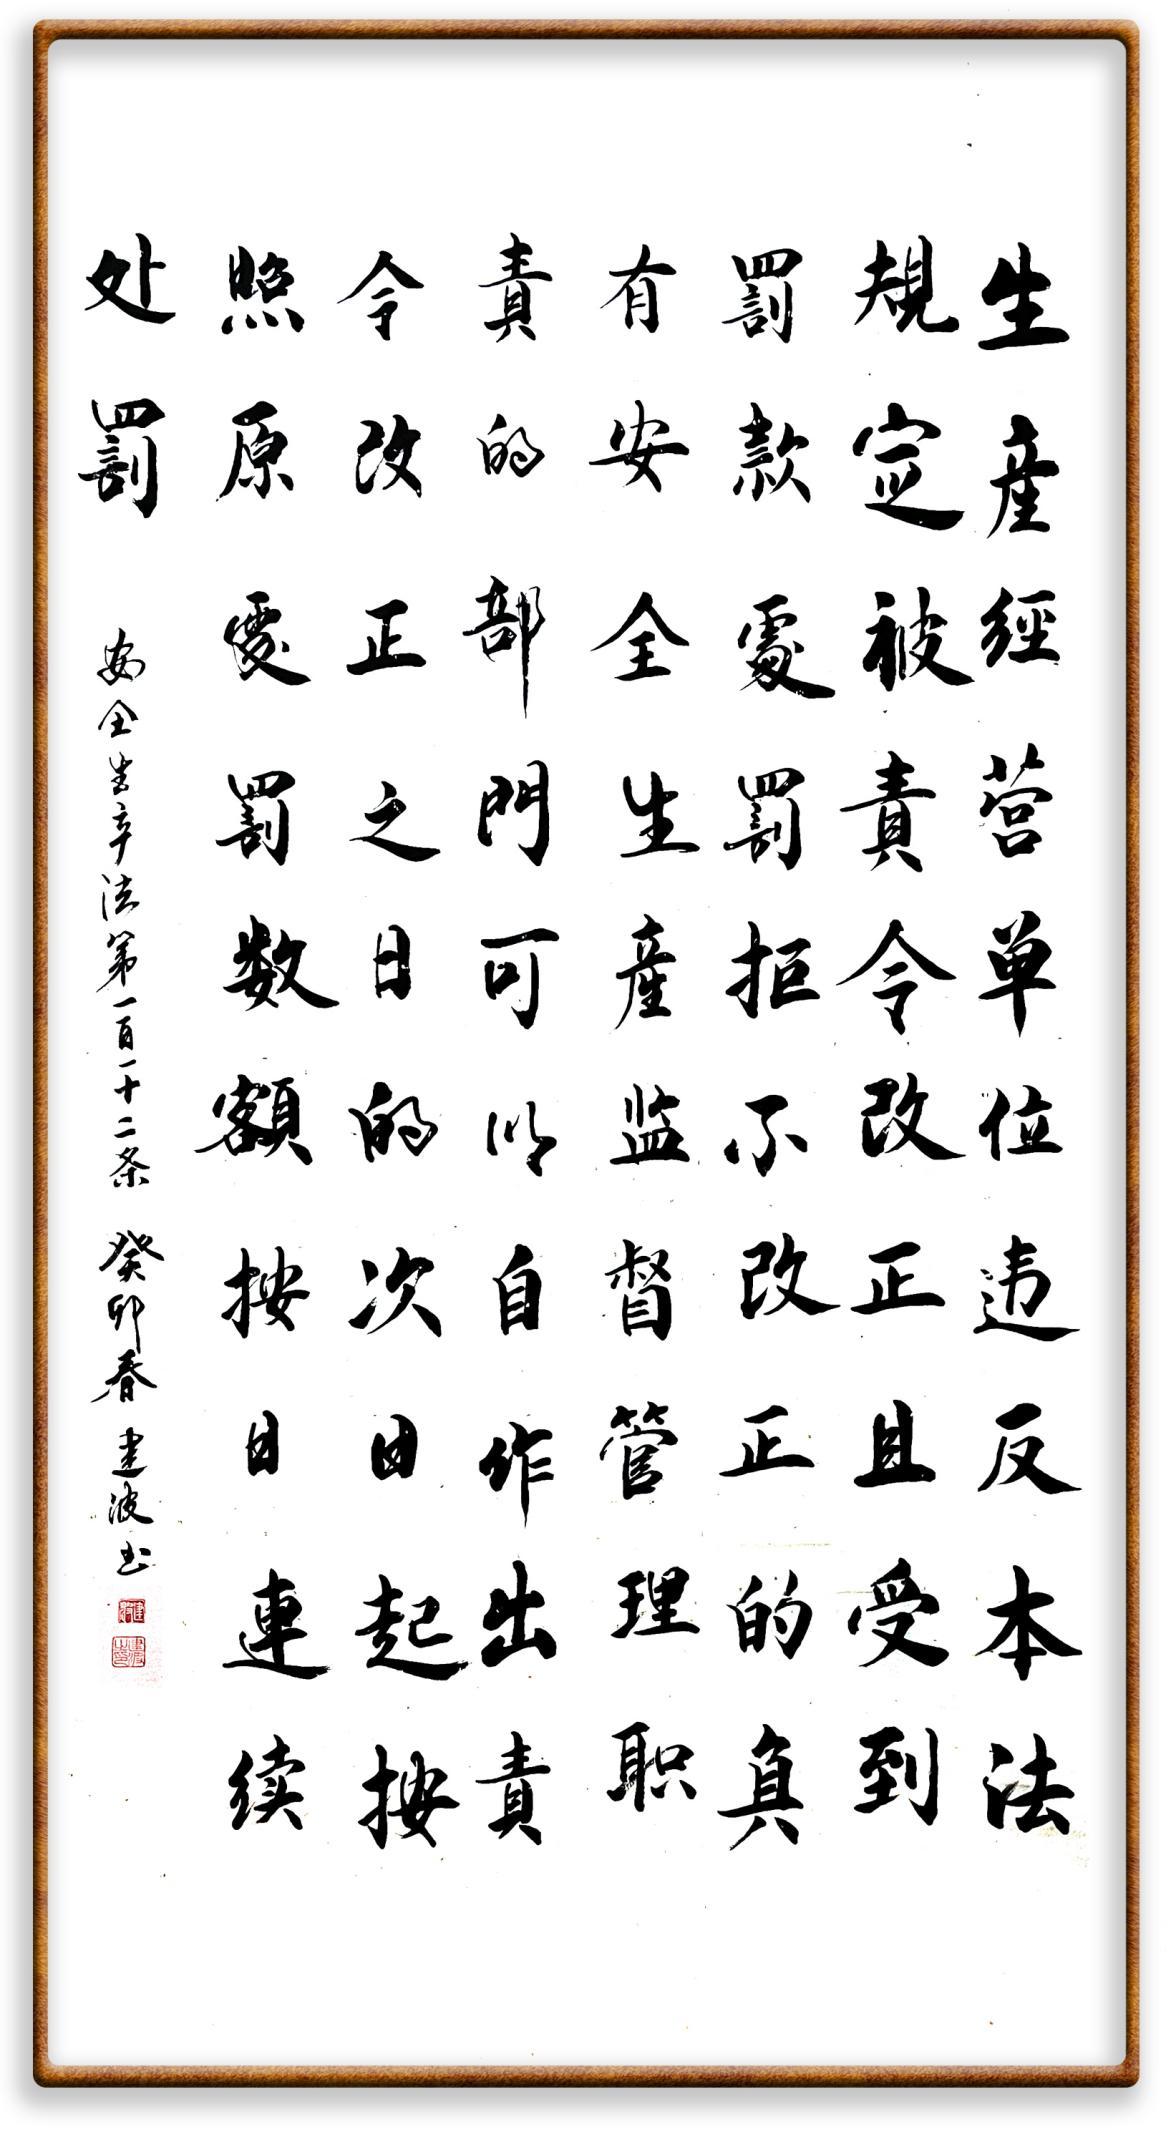 生産經营单位违反本法
規定被責令改正且受到
罰款處罰拒不改正的負
有安全生産监督管理职
責的部門可以自作出責
令改正之日的次日起按
照原處罰数額按日連续
处罰
安全生产法第一百一十二条 癸卯春 建波书